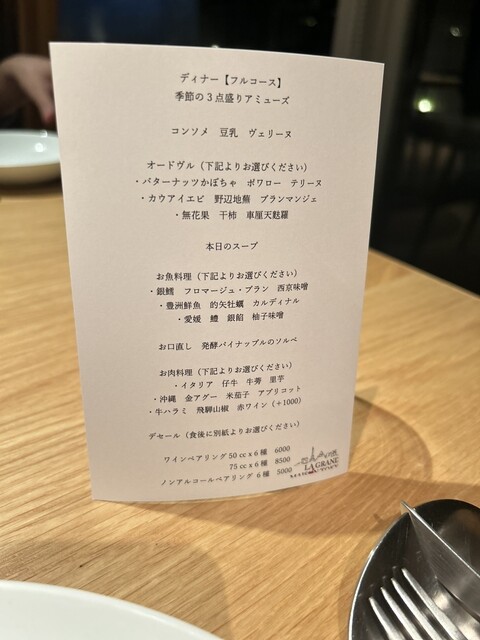 ディナー【フルコース】
季節の３点盛りアミューズ
コンソメ　豆乳　ヴェリーヌ
オードヴル（下記よりお選びください）
・バターナッツかぼちゃ　ポワロー　テリーヌ
・カウアイエビ　野辺地蕪　ブランマンジェ
・無花果　干柿　車厘天麩羅
本日のスープ
お魚料理（下記よりお選びください）
・銀鱈　フロマージュ・ブラン　西京味噌
・豊洲鮮魚　的矢牡蠣　カルディナル
・愛媛　鱧　銀餡　柚子味噌
お口直し　発酵パイナップルのソルベ
お肉料理（下記よりお選びください）
・イタリア　仔牛　牛蒡　里芋
・沖縄　金アグー　米茄子　アプリコット
・牛ハラミ　飛騨山椒　赤ワイン（+1000）
デセール（食後に別紙よりお選びください）
ワインペアリング 50 cc x 6 種　6000
75 cc x 6 種　8500
ノンアルコールペアリング 6 種　5000
LA GRANE